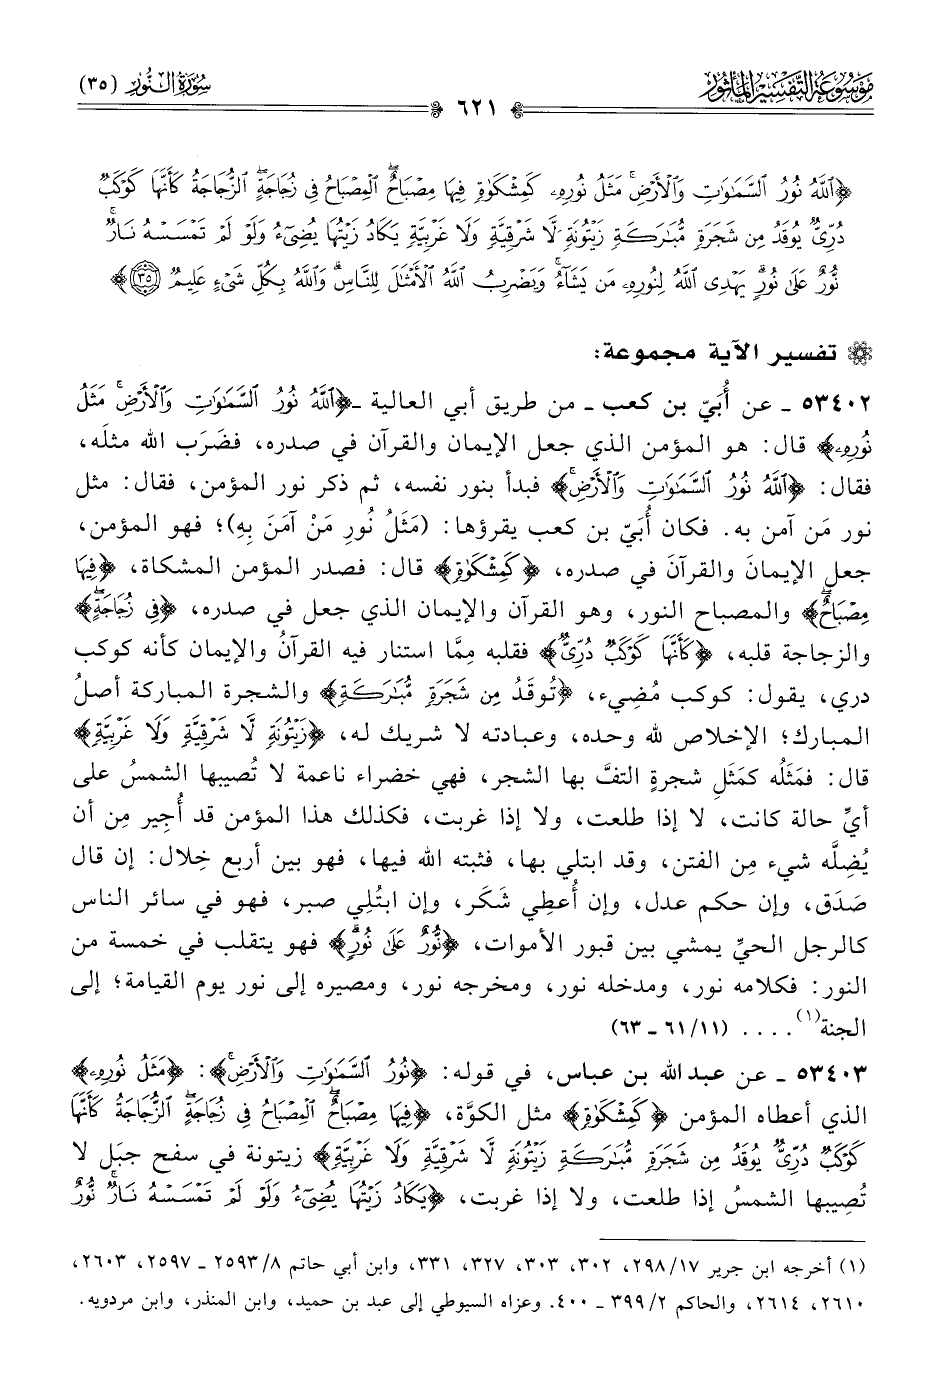 موسوعة التفسير المأثور
سورة النور (٣٥)
٦٢١
﴿ٱللَّهُ نُورُ ٱلسَّمَٰوَٰتِ وَٱلْأَرْضِۚ مَثَلُ نُورِهِۦ كَمِشْكَوٰةٍ فِيهَا مِصْبَاحٌۖ ٱلْمِصْبَاحُ فِى زُجَاجَةٍۖ ٱلزُّجَاجَةُ كَأَنَّهَا كَوْكَبٌ
دُرِّىٌّ يُوقَدُ مِن شَجَرَةٍ مُّبَٰرَكَةٍ زَيْتُونَةٍ لَّا شَرْقِيَّةٍ وَلَا غَرْبِيَّةٍ يَكَادُ زَيْتُهَا يُضِىٓءُ وَلَوْ لَمْ تَمْسَسْهُ نَارٌۚ
نُّورٌ عَلَىٰ نُورٍۗ يَهْدِى ٱللَّهُ لِنُورِهِۦ مَن يَشَآءُۚ وَيَضْرِبُ ٱللَّهُ ٱلْأَمْثَٰلَ لِلنَّاسِۗ وَٱللَّهُ بِكُلِّ شَىْءٍ عَلِيمٌ ٣٥﴾
تفسير الآية مجموعة:
٥٣٤٠٢ ـ عن أُبَيّ بن كعب ـ من طريق أبي العالية ـ ﴿ٱللَّهُ نُورُ ٱلسَّمَٰوَٰتِ وَٱلْأَرْضِۚ مَثَلُ
نُورِهِۦ﴾ قال: هو المؤمن الذي جعل الإيمان والقرآن في صدره، فضَرَب الله مثلَه،
فقال: ﴿ٱللَّهُ نُورُ ٱلسَّمَٰوَٰتِ وَٱلْأَرْضِۚ﴾ فبدأ بنور نفسه، ثم ذكر نور المؤمن، فقال: مثل
نور مَن آمن به. فكان أُبَيّ بن كعب يقرؤها: (مَثَلُ نُورِ مَنْ آمَنَ بِهِ)؛ فهو المؤمن،
جعل الإيمانَ والقرآنَ في صدره، ﴿كَمِشْكَوٰةٍ﴾ قال: فصدر المؤمن المشكاة، ﴿فِيهَا
مِصْبَاحٌۖ﴾ والمصباح النور، وهو القرآن والإيمان الذي جعل في صدره، ﴿فِى زُجَاجَةٍۖ﴾
والزجاجة قلبه، ﴿كَأَنَّهَا كَوْكَبٌ دُرِّىٌّ﴾ فقلبه مِمَّا استنار فيه القرآنُ والإيمان كأنه كوكب
دري، يقول: كوكب مُضيء، ﴿تُوقَدُ مِن شَجَرَةٍ مُّبَٰرَكَةٍ﴾ والشجرة المباركة أصلُ
المبارك؛ الإخلاص لله وحده، وعبادته لا شريك له، ﴿زَيْتُونَةٍ لَّا شَرْقِيَّةٍ وَلَا غَرْبِيَّةٍ﴾
قال: فمَثَلُه كمَثَلِ شجرةٍ التفَّ بها الشجر، فهي خضراء ناعمة لا تُصيبها الشمسُ على
أيِّ حالة كانت، لا إذا طلعت، ولا إذا غربت، فكذلك هذا المؤمن قد أُجِير مِن أن
يُضِلَّه شيء مِن الفتن، وقد ابتلي بها، فثبته الله فيها، فهو بين أربع خِلال: إن قال
صَدَق، وإن حكم عدل، وإن أُعطِي شَكَر، وإن ابتُلِي صبر، فهو في سائر الناس
كالرجل الحيِّ يمشي بين قبور الأموات، ﴿نُّورٌ عَلَىٰ نُورٍۗ﴾ فهو يتقلب في خمسة من
النور: فكلامه نور، ومدخله نور، ومخرجه نور، ومصيره إلى نور يوم القيامة؛ إلى
الجنة(١). . . . (١١/٦١ ـ ٦٣)
٥٣٤٠٣ ـ عن عبد الله بن عباس، في قوله: ﴿نُورُ ٱلسَّمَٰوَٰتِ وَٱلْأَرْضِۚ﴾: ﴿مَثَلُ نُورِهِۦ﴾
الذي أعطاه المؤمن ﴿كَمِشْكَوٰةٍ﴾ مثل الكوَّة، ﴿فِيهَا مِصْبَاحٌۖ ٱلْمِصْبَاحُ فِى زُجَاجَةٍۖ ٱلزُّجَاجَةُ كَأَنَّهَا
كَوْكَبٌ دُرِّىٌّ يُوقَدُ مِن شَجَرَةٍ مُّبَٰرَكَةٍ زَيْتُونَةٍ لَّا شَرْقِيَّةٍ وَلَا غَرْبِيَّةٍ﴾ زيتونة في سفح جبَل لا
تُصيبها الشمسُ إذا طلعت، ولا إذا غربت، ﴿يَكَادُ زَيْتُهَا يُضِىٓءُ وَلَوْ لَمْ تَمْسَسْهُ نَارٌۚ نُّورٌ
(١) أخرجه ابن جرير ١٧/٢٩٨، ٣٠٢، ٣٠٣، ٣٢٧، ٣٣١، وابن أبي حاتم ٨/٢٥٩٣ ـ ٢٥٩٧، ٢٦٠٣،
٢٦١٠، ٢٦١٤، والحاكم ٢/٣٩٩ ـ ٤٠٠. وعزاه السيوطي إلى عبد بن حميد، وابن المنذر، وابن مردويه.